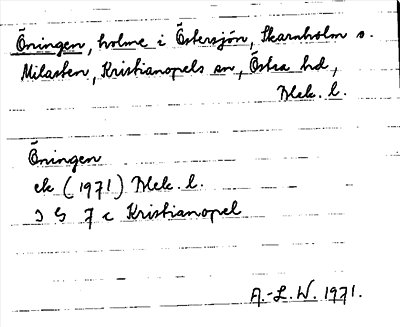 Öningen, holme i Östersjön, Skarnholm s.
Milasten, Kristianopels sn, Östra hd,
Blek. l.
Öningen
ek (1971) Blek. l.
J G 7 c Kristianopel
A.-L. W. 1971.